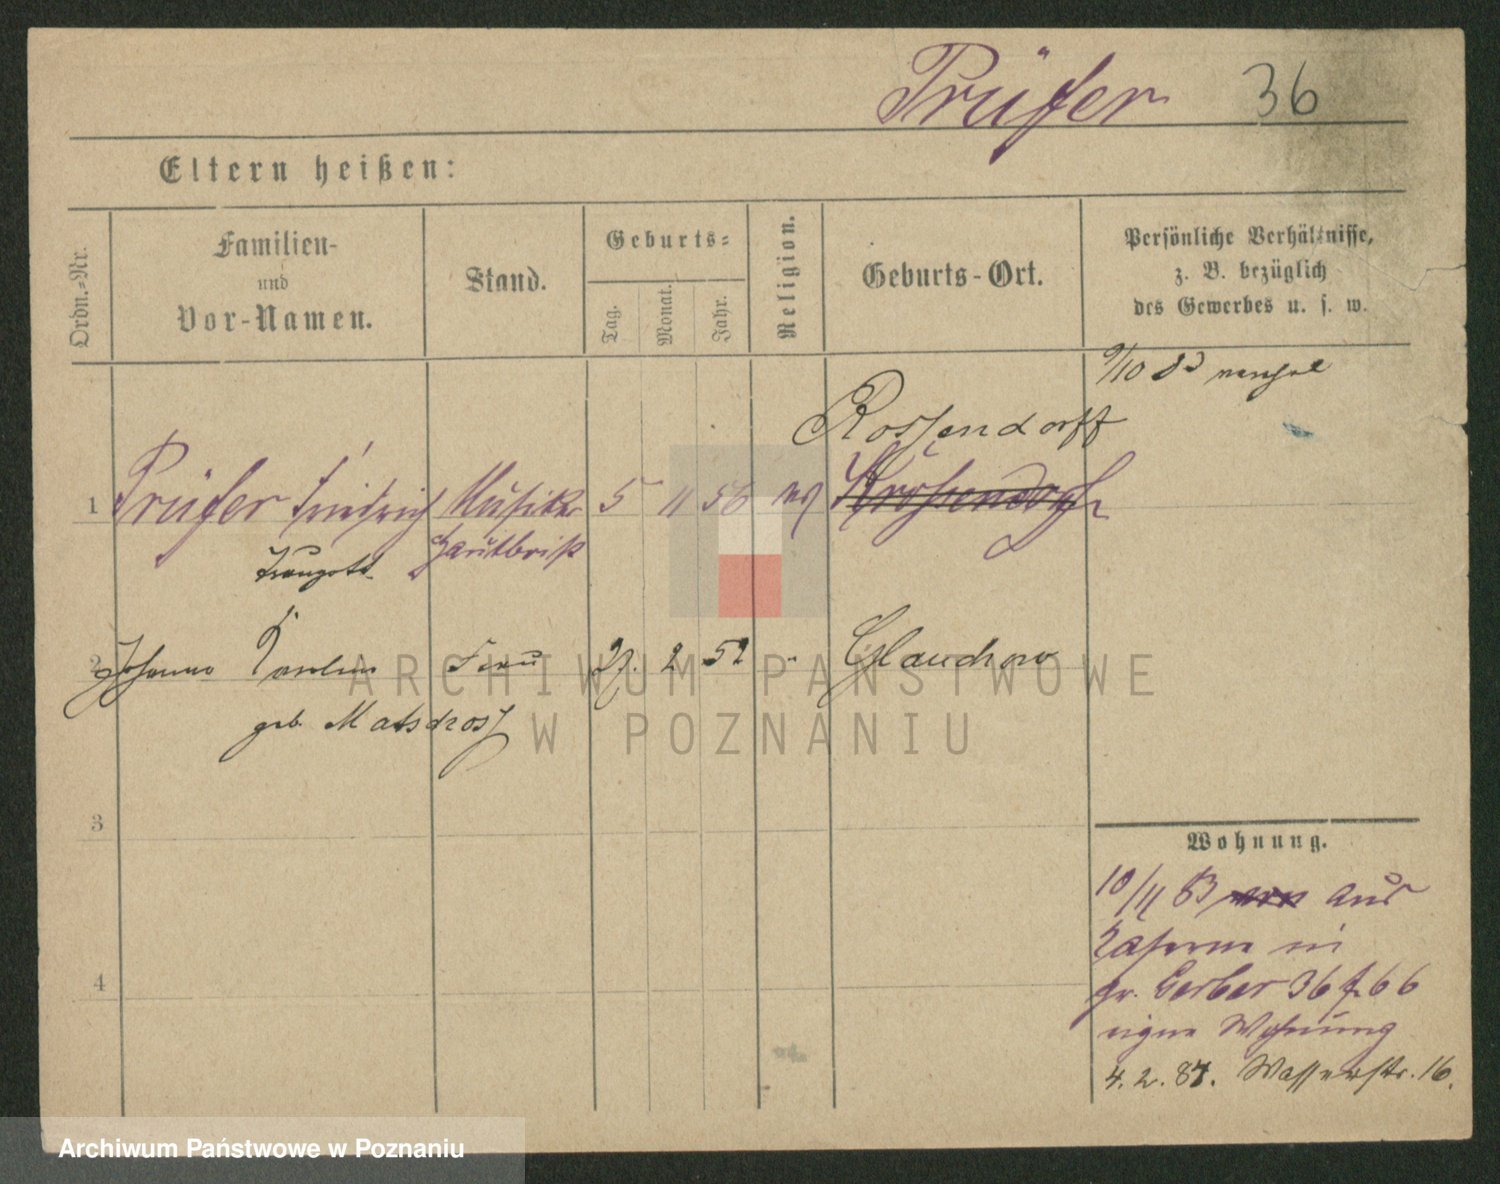 Prüfer 36
Eltern heißen:
Ordn.=Nr.
Familien-
und
Vor-Namen.
Stand.
Geburts=
Tag.
Monat.
Jahr.
Religion.
Geburts-Ort.
Persönliche Verhältnisse,
z. B. bezüglich
des Gewerbes u. s. w.
9/10 83
Rossendorff
1 Prüfer Friedrich Musiker 5 11 56
Hautboist
Traugott
2 Johanna Frau 27. 2 52 " Glauchow
geb. Matschoss
3
Wohnung.
10/11 83 aus
Kaserne in
gr. Gerber 36
4
eigene Wohnung
4. 2. 87. Wasserstr. 16.
ARCHIWUM PAŃSTWOWE
W POZNANIU
Archiwum Państwowe w Poznaniu